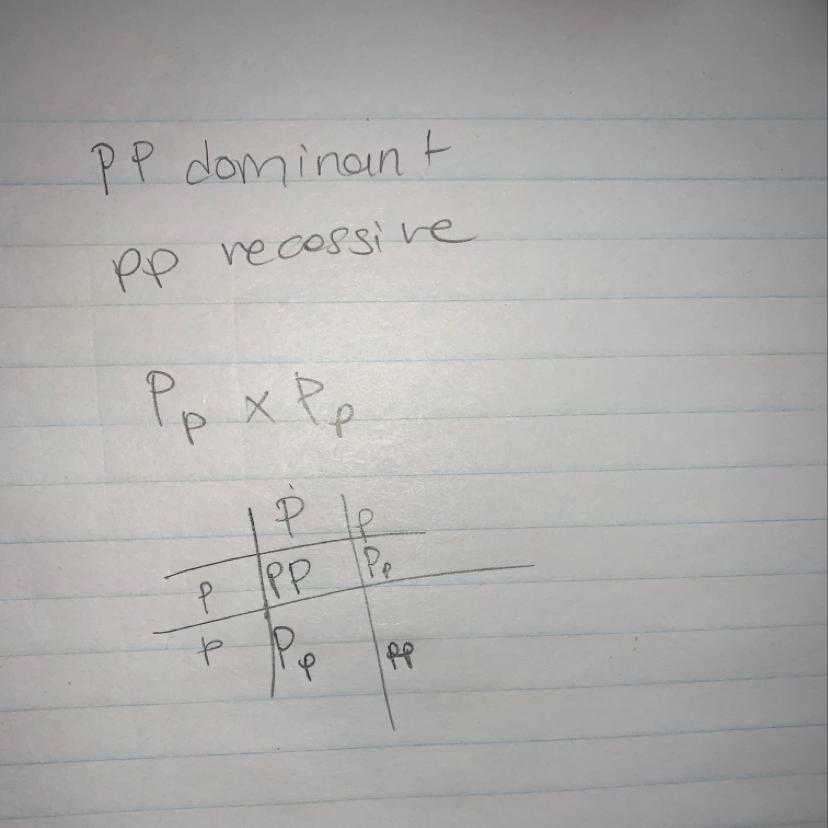 PP dominant
pp recessive
Pp x Pp
P p
P PP Pp
p Pp pp